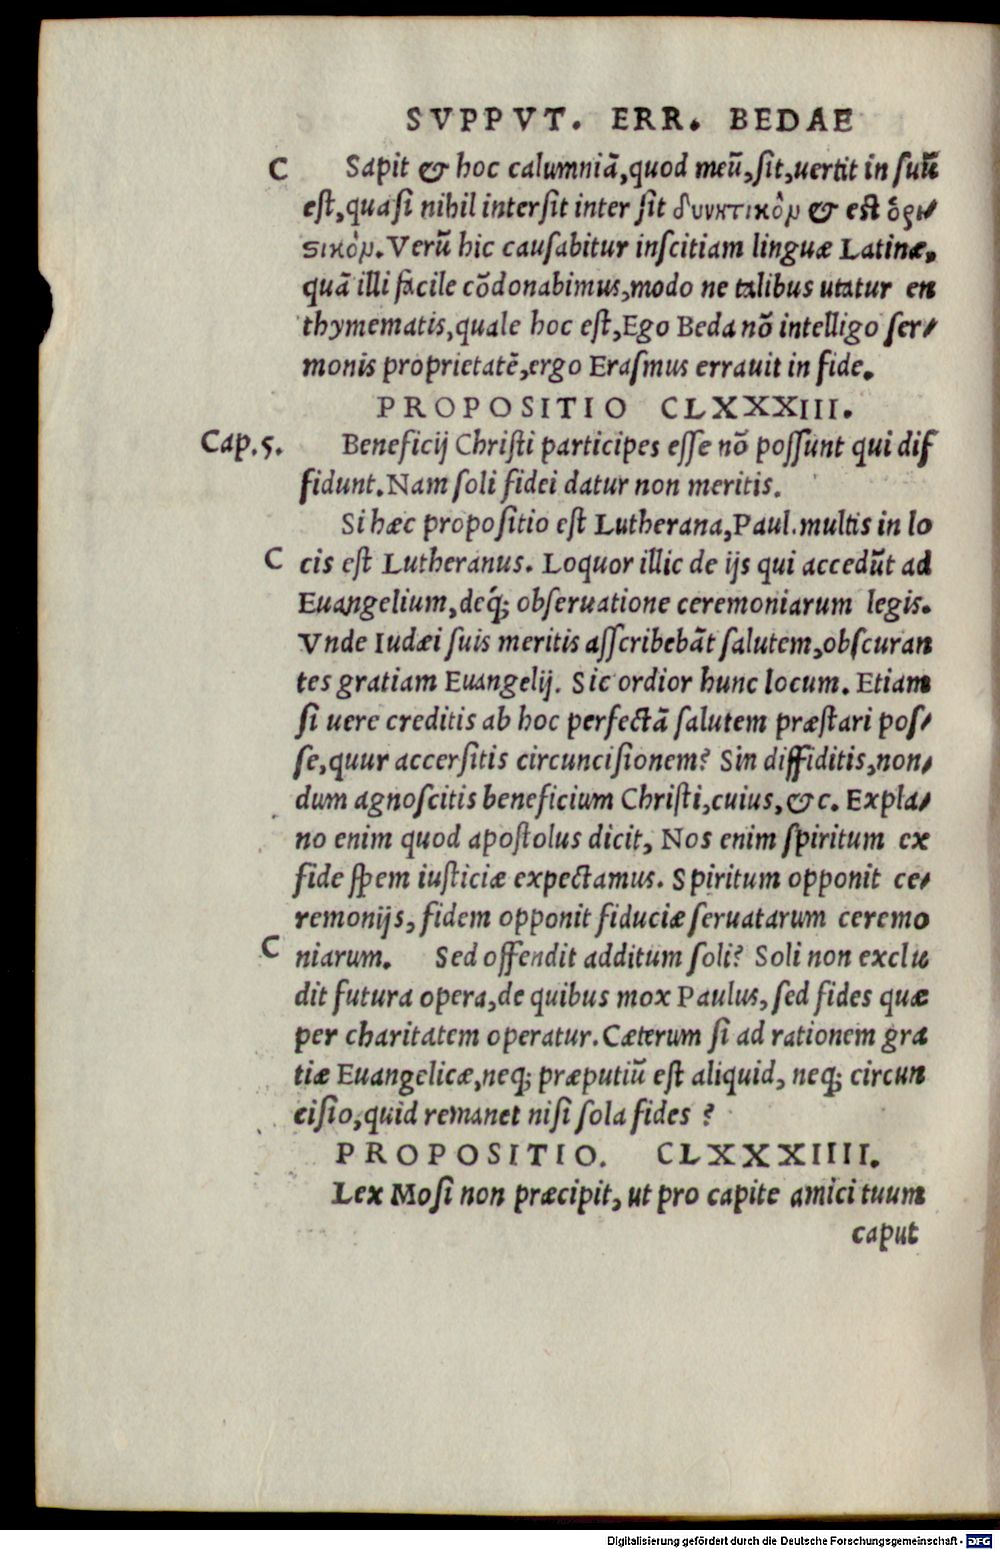 SVPPVT. ERR. BEDAE
C Sapit & hoc calumniā,quod meū,sit,uertit in suū
est,quasi nihil intersit inter sit δυνκτικὸμ & est ὁρι-
ϛικὸμ. Verū hic causabitur inscitiam linguæ Latinæ,
quā illi facile cōdonabimus,modo ne talibus utatur en
thymematis,quale hoc est,Ego Beda nō intelligo ser-
monis proprietatē,ergo Erasmus errauit in fide.
PROPOSITIO CLXXXIII.
Cap.5. Beneficij Christi participes esse nō possunt qui dif
fidunt.Nam soli fidei datur non meritis.
Si hæc propositio est Lutherana,Paul.multis in lo
C cis est Lutheranus. Loquor illic de ijs qui accedūt ad
Euangelium,deq́; obseruatione ceremoniarum legis.
Vnde Iudæi suis meritis asscribebāt salutem,obscuran
tes gratiam Euangelij. Sic ordior hunc locum. Etiam
si uere creditis ab hoc perfectā salutem præstari pos-
se,quur accersitis circuncisionem? Sin diffiditis,non-
dum agnoscitis beneficium Christi,cuius,&c. Expla-
no enim quod apostolus dicit, Nos enim spiritum ex
fide spem iusticiæ expectamus. Spiritum opponit ce-
remonijs, fidem opponit fiduciæ seruatarum ceremo
C niarum. Sed offendit additum soli? Soli non exclu
dit futura opera,de quibus mox Paulus, sed fides quæ
per charitatem operatur. Cæterum si ad rationem gra
tiæ Euangelicæ,neq; præputiū est aliquid, neq; circun
cisio,quid remanet nisi sola fides ?
PROPOSITIO. CLXXXIIII.
Lex Mosi non præcipit, ut pro capite amici tuum
caput
Digitalisierung gefördert durch die Deutsche Forschungsgemeinschaft - DFG